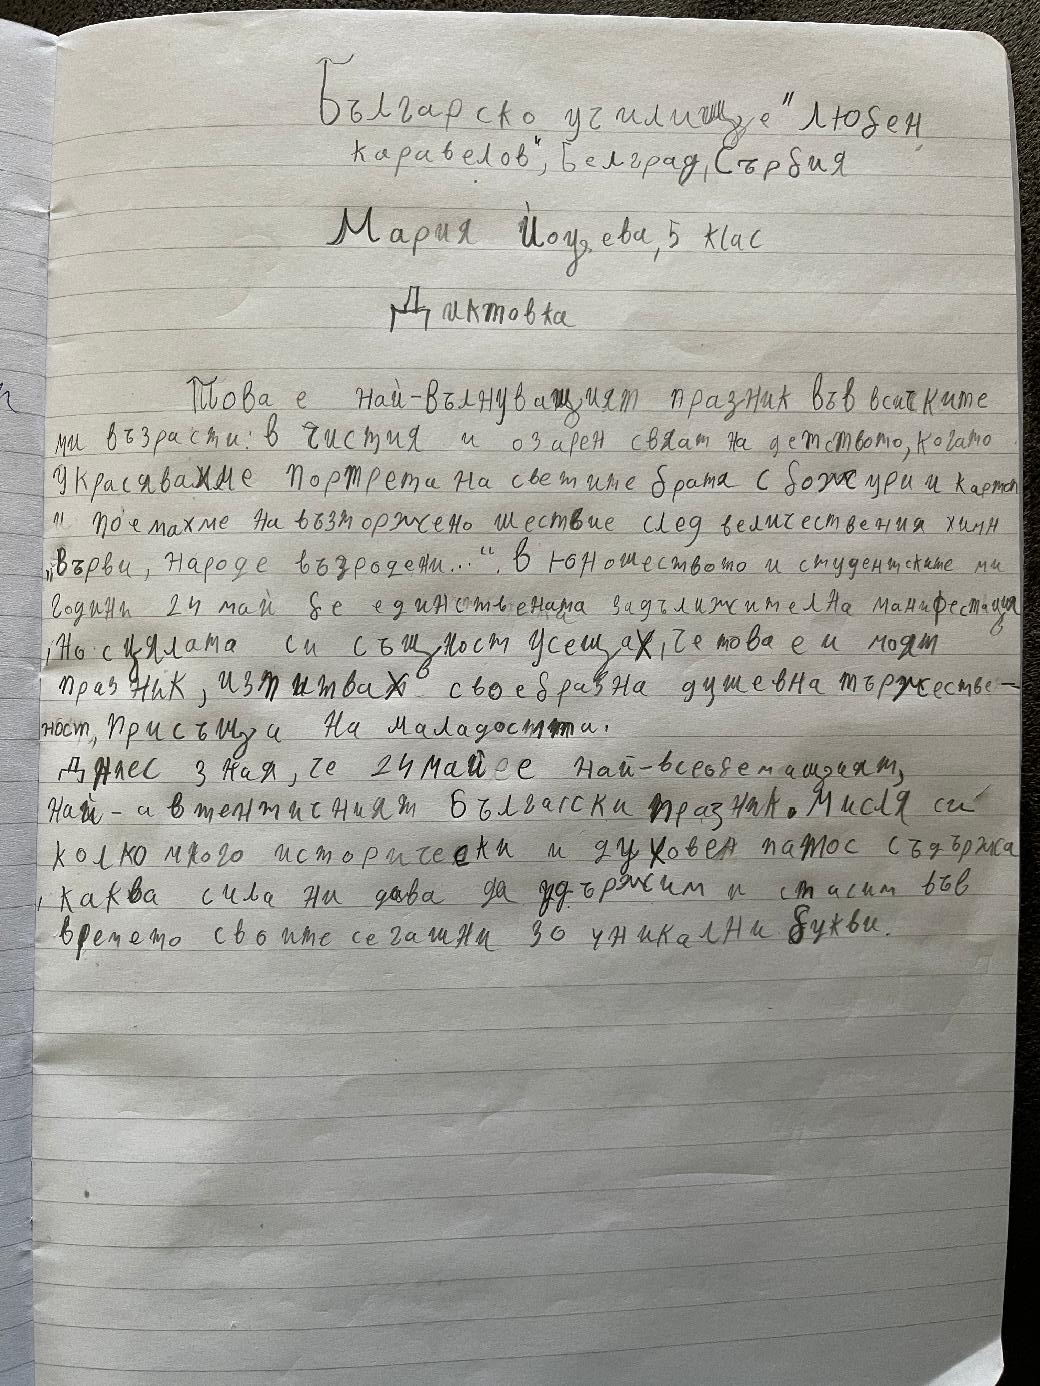 Българско училище "Любен
каравелов", Белград, Сърбия
Мария Йоцева, 5 клас
Диктовка
Това е най-вълнуващият празник във всичките
ми възрасти: в чистия и озарен свят на детството, когато
украсявахме портрета на светите братя с божури и
поемахме на възторжено шествие след величествения химн
„Върви, народе възродени..." в юношеството и студентските ми
години 24 май бе единствената задължителна манифестация
, но с цялата си същност усещах, че това е и моят
празник, изпитвах своебразна душевна тържестве-
ност, присъща на маладостта.
Днес зная, че 24 май е най-всеобемащият,
най-автентисният български празник. Мисля си
колко много исторически и духовен патос съдържа
, каква сила ни дава да удържим и стасим във
времето своите сегашни 30 уникални букви.